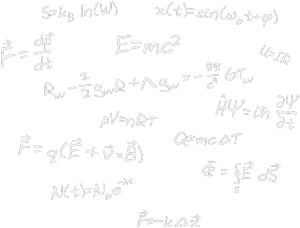 S=k_B ln(W)
x(t)=sin(ω_0t+φ)
F⃗ = dp⃗/dt
E=mc²
U=IR
R_μν - 1/2 g_μν R + Λ g_μν = - 8π/c⁴ G T_μν
ĤΨ=iħ ∂Ψ/∂t
pV=nRT
Q=mcΔT
F⃗=q(E⃗ + v⃗×B⃗)
Φ⃗ = ∮_S E⃗ dS⃗
N(t)=N_0e^-λt
F⃗=-kΔx⃗